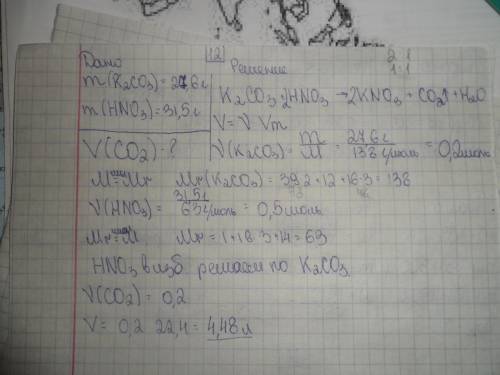 12
2 1
1:1
Дано
Решение
m(K₂CO₃)=27,6г
m(HNO₃)=31,5г
K₂CO₃+2HNO₃→2KNO₃+CO₂↑+H₂O
V=ν Vm
V(CO₂)-?
ν(K₂CO₃)=m/M=27,6г/138 г/моль=0,2моль
M=Mr Mr(K₂CO₃)=39·2+12+16·3=138
ν(HNO₃)=31,5г/63г/моль=0,5моль
Mr=M Mr=1+16·3+14=63
HNO₃ в изб решаем по K₂CO₃
ν(CO₂)=0,2
V=0,2 22,4=4,48л